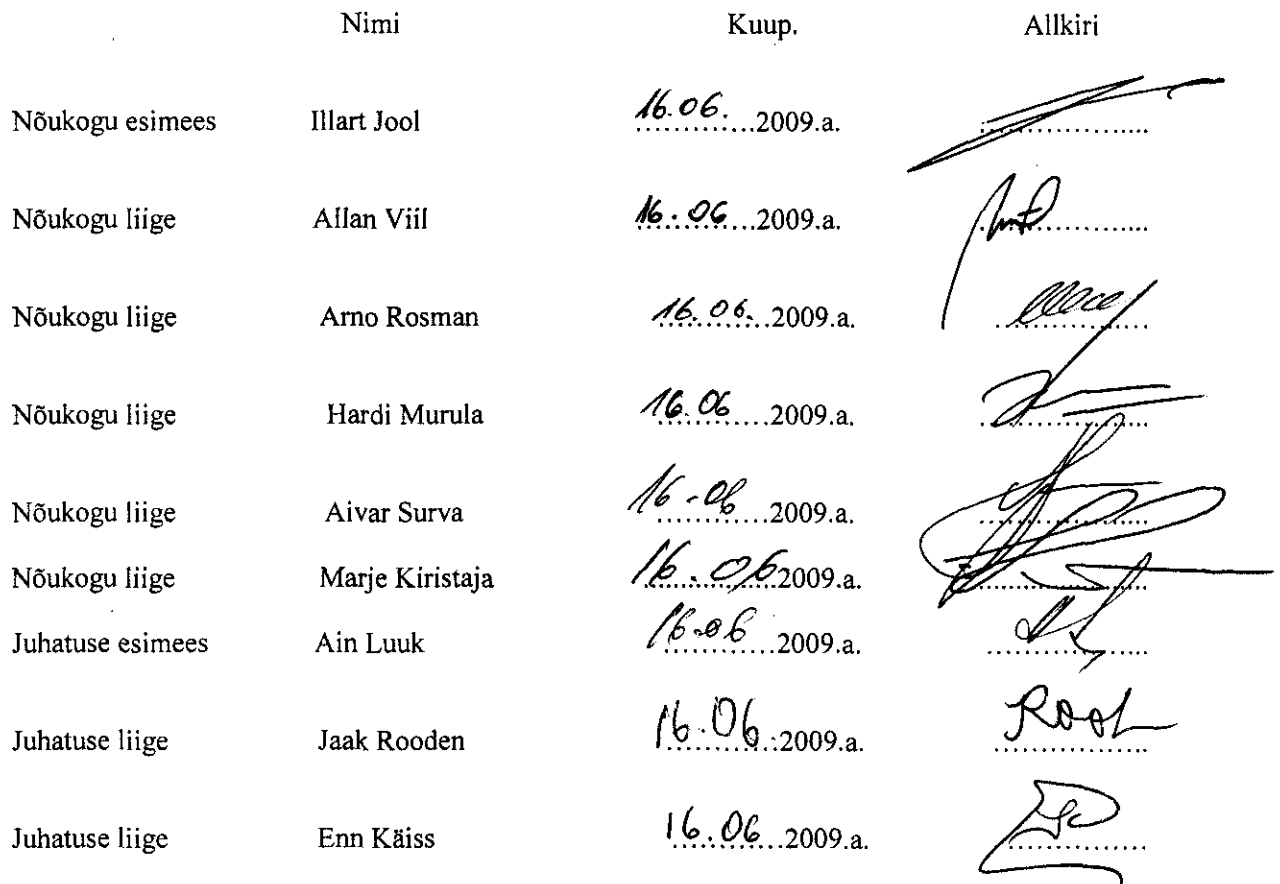 Nimi Kuup. Allkiri
Nõukogu esimees Illart Jool 16.06.........2009.a. ....................
Nõukogu liige Allan Viil 16.06.........2009.a. ....................
Nõukogu liige Arno Rosman 16.06.........2009.a. ....................
Nõukogu liige Hardi Murula 16.06.........2009.a. ....................
Nõukogu liige Aivar Surva 16.06.........2009.a. ....................
Nõukogu liige Marje Kiristaja 16.06.2009.a. ....................
Juhatuse esimees Ain Luuk 16.06.........2009.a. ....................
Juhatuse liige Jaak Rooden 16.06.........2009.a. ....................
Juhatuse liige Enn Käiss 16.06.........2009.a. ....................